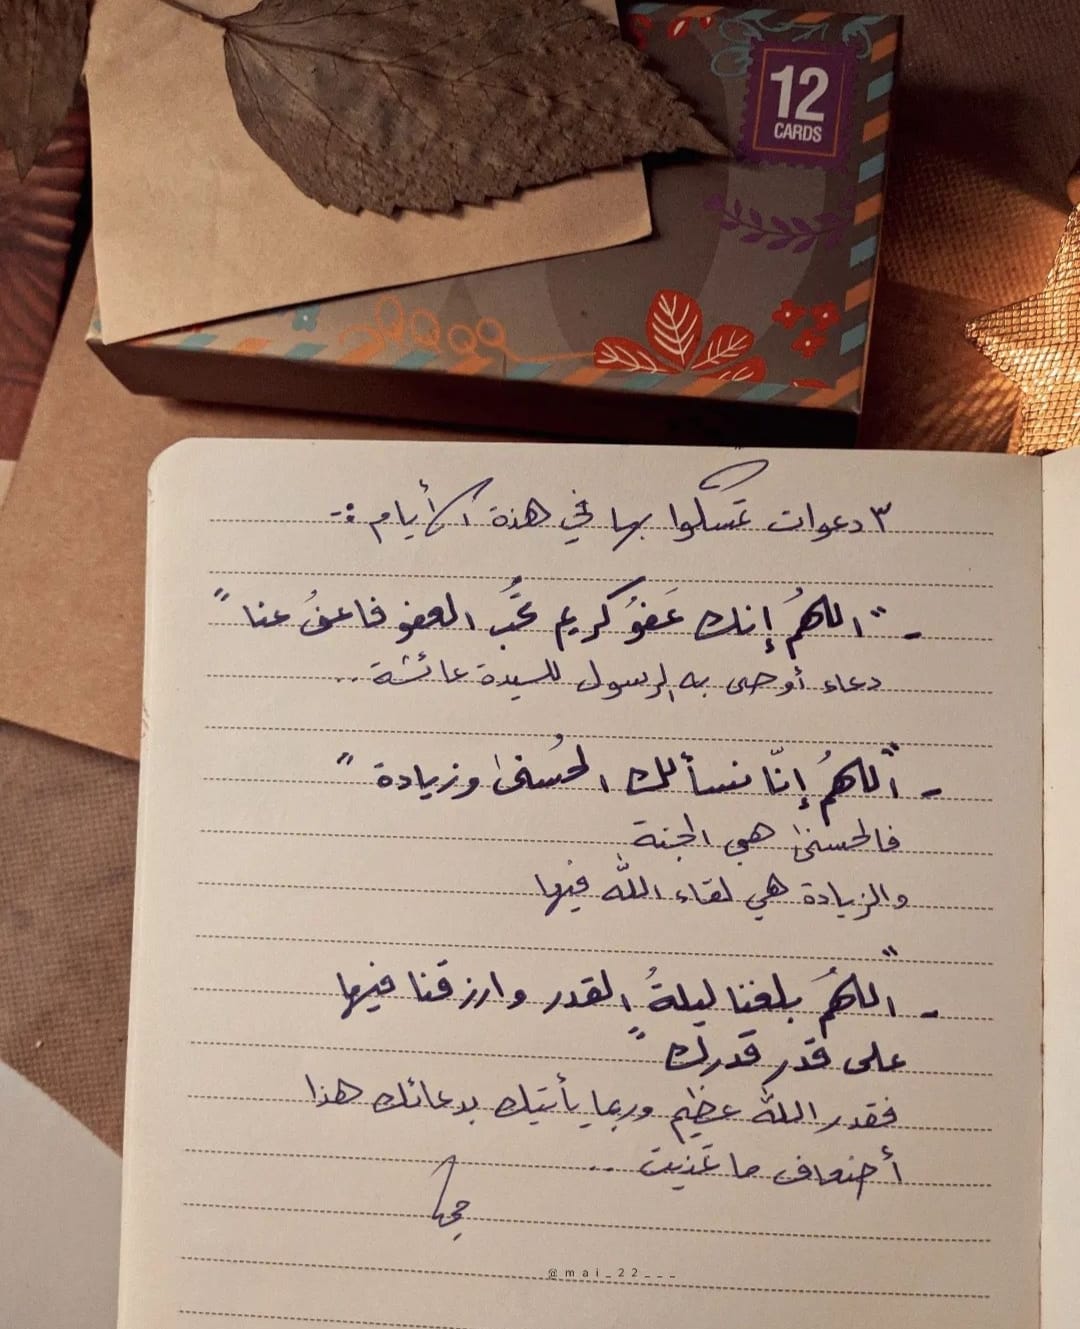 12
CARDS
٣ دعوات تمسكوا بها في هذة الأيام :-
- "اللهمُ إنك عَفوُ كريم تحُب العفو فاعفُ عنا"
دعاء أوصى به الرسول للسيدة عائشة ..
- "اللهمُ إنّا نسألك الحُسنىٰ وزيادة"
فالحسنىٰ هي الجنة
والزيادة هي لقاء اللّٰه فيها
- "اللهمُ بلغنا ليلةُ القدر وارزقنا فيها
على قدر قدرك"
فقدر اللّٰه عظيم وربما يأتيك بدعائك هذا
أضعاف ما تمنيت ..
@mai_22___